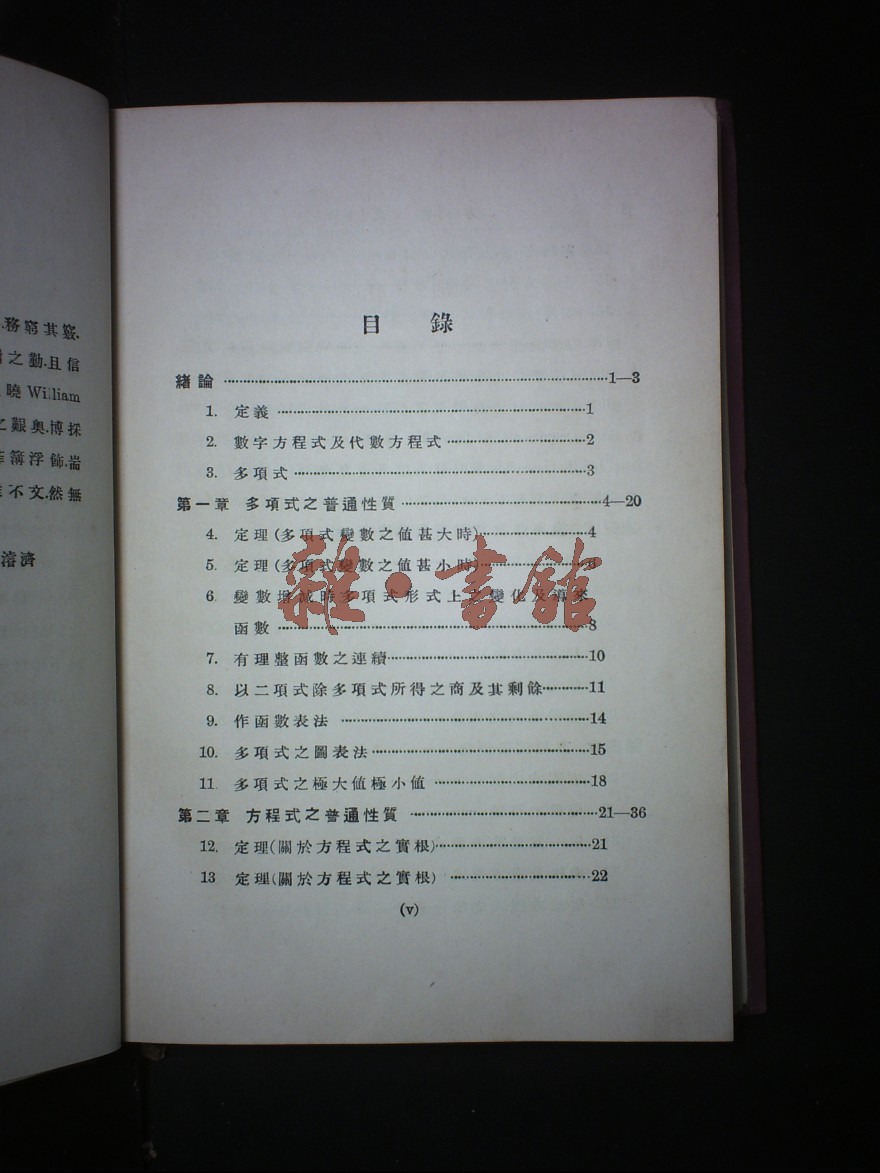 務窮其竅.
之勤.且信
曉William
艱奧.博採
浮飾.耑
不文.然無
溶濟
目 錄
緒論……1—3
1. 定義……1
2. 數字方程式及代數方程式……2
3. 多項式……3
第一章 多項式之普通性質……4—20
4. 定理(多項式變數之值甚大時)……4
5. 定理(多項式變數之值甚小時)……6
6. 變數增減時多項式形式上之變化及導來
函數……8
7. 有理整函數之連續……10
8. 以二項式除多項式所得之商及其剩餘……11
9. 作函數表法……14
10. 多項式之圖表法……15
11. 多項式之極大値極小値……18
第二章 方程式之普通性質……21—36
12. 定理(關於方程式之實根)……21
13 定理(關於方程式之實根)……22
(v)
雜·書館